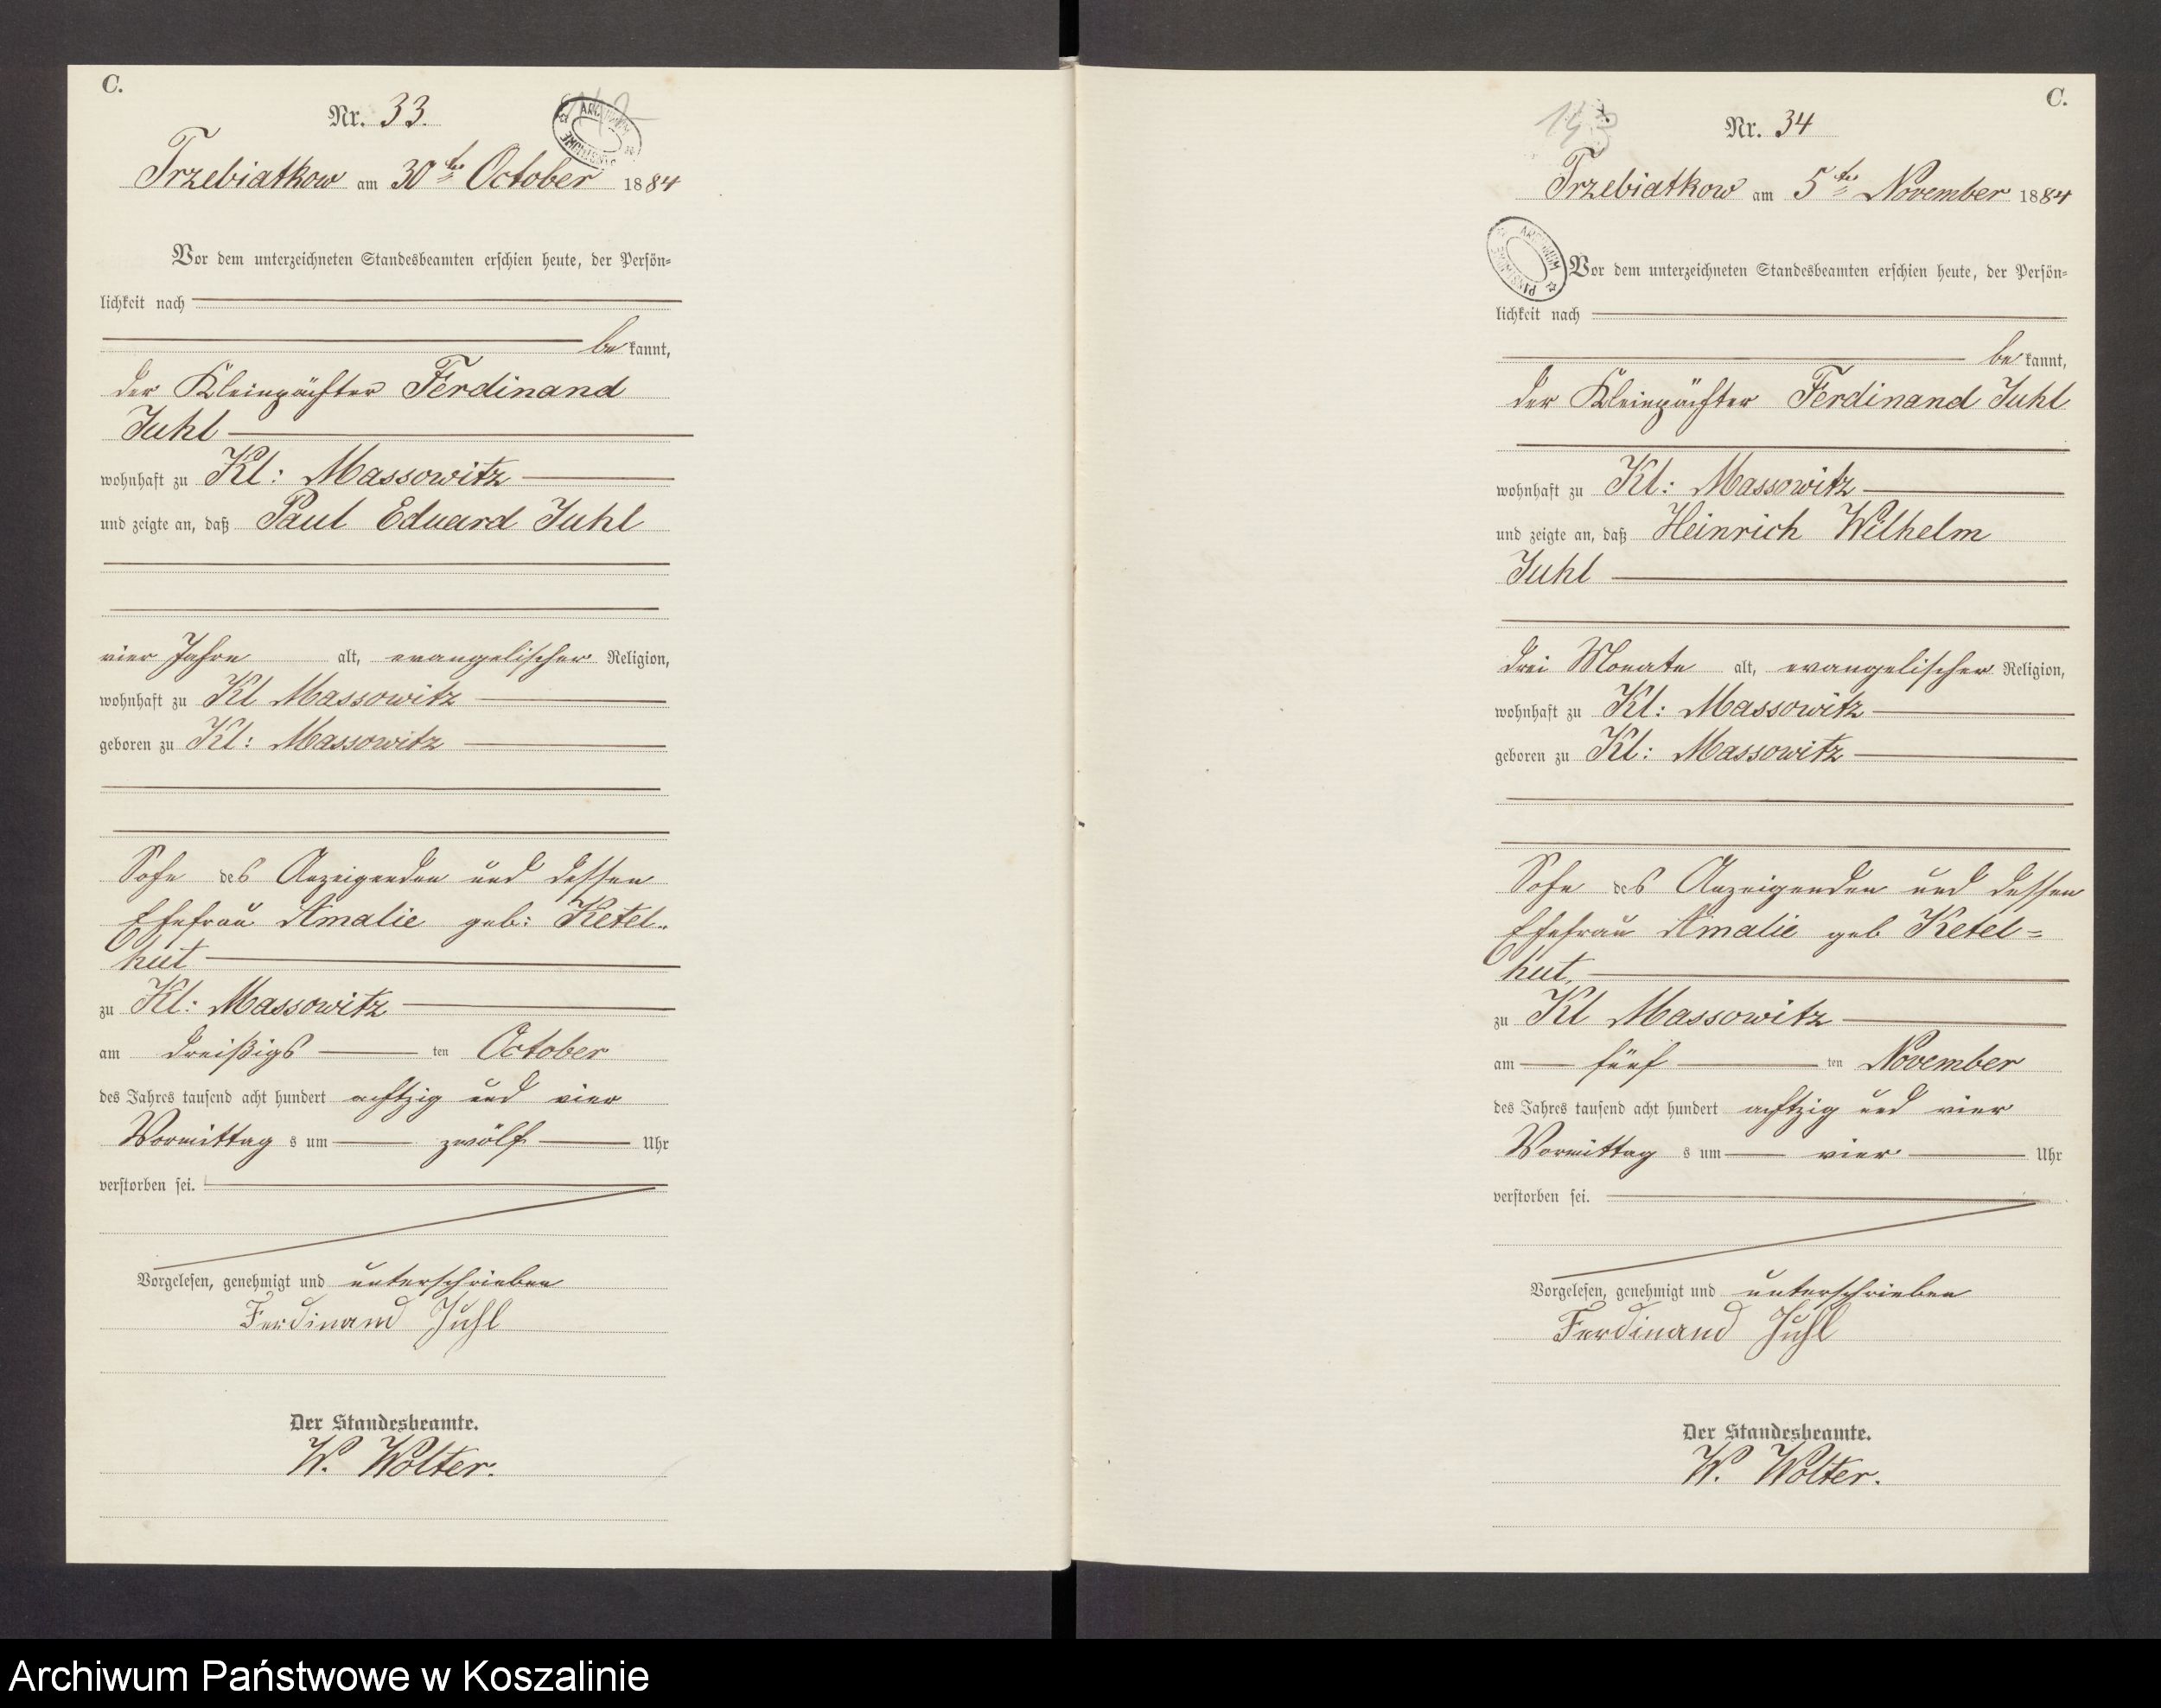 C.
Nr. 33.
Trzebiatkow am 30ten October 1884
Vor dem unterzeichneten Standesbeamten erschien heute, der Persön=
lichkeit nach
bekannt,
der Kleinpächter Ferdinand
Juhl
wohnhaft zu Kl: Massowitz
und zeigte an, daß Paul Eduard Juhl
vier Jahre alt, evangelischer Religion,
wohnhaft zu Kl Massowitz
geboren zu Kl: Massowitz
Sohn des Anzeigenden und dessen
Ehefrau Amalie geb: Ketel=
hut
zu Kl: Massowitz
am dreißigs ten October
des Jahres tausend acht hundert achtzig und vier
Vormittag s um zwölf Uhr
verstorben sei.
Vorgelesen, genehmigt und unterschrieben
Ferdinand Juhl
Der Standesbeamte.
W. Wolter.
C.
143
Nr. 34
Trzebiatkow am 5ten November 1884
ARCHIWUM PAŃSTWOWE
Vor dem unterzeichneten Standesbeamten erschien heute, der Persön=
lichkeit nach
bekannt,
der Kleinpächter Ferdinand Juhl
wohnhaft zu Kl: Massowitz
und zeigte an, daß Heinrich Wilhelm
Juhl
drei Monate alt, evangelischer Religion,
wohnhaft zu Kl: Massowitz
geboren zu Kl: Massowitz
Sohn des Anzeigenden und dessen
Ehefrau Amalie geb Ketel=
hut,
zu Kl Massowitz
am fünf ten November
des Jahres tausend acht hundert achtzig und vier
Vormittag s um vier Uhr
verstorben sei.
Vorgelesen, genehmigt und unterschrieben
Ferdinand Juhl
Der Standesbeamte.
W. Wolter.
Archiwum Państwowe w Koszalinie